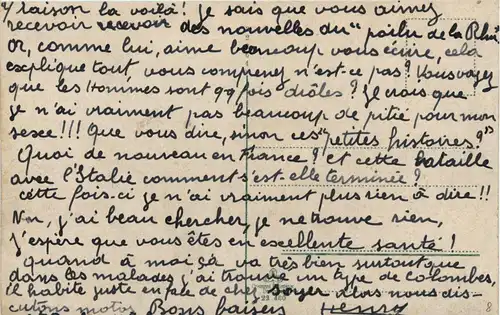 9/ raison la voilà! Je sais que vous aimez
recevoir recevoir des nouvelles du "poilu de la Rhu"
Or, comme lui, aime beaucoup vous écrire, cela
explique tout, vous comprenez n'est-ce pas? Vous voyez
que les Hommes sont qq fois drôles? Je crois que
je n'ai vraiment pas beaucoup de pitié pour mon
sexe!!! Que vous dire, sinon ces "petites histoires?"
Quoi de nouveau en France? et cette bataille
avec l'Italie comment s'est-elle terminée?
cette fois-ci je n'ai vraiment plus rien à dire!!
j'ai beau chercher, je ne trouve rien,
J'espère que vous êtes en excellente santé!
Quand à moi ça va très bien surtout que
dans les malades j'ai trouvé un type de Colombes,
il habite juste en face de chez Soyer alors nous dis-
cutons motos. Bons baisers Henry
8